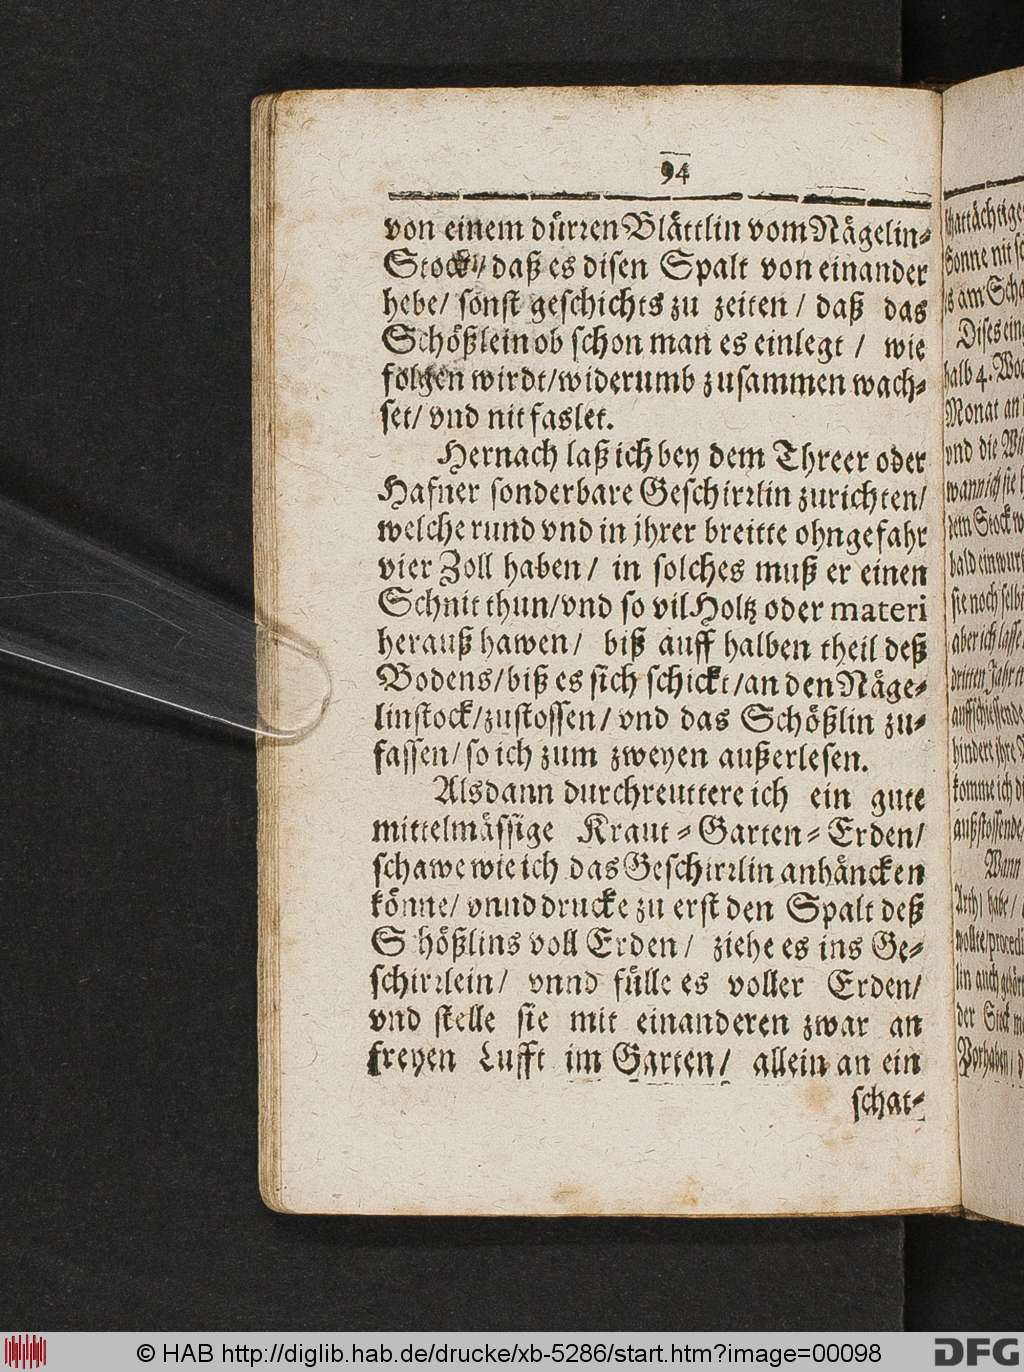 94
von einem dürren Blättlin vom Nägelin-
Stock/ daß es disen Spalt von einander
hebe/ sonst geschichts zu zeiten / daß das
Schößlein ob schon man es einlegt / wie
folgen wirdt/widerumb zusammen wach-
set/ vnd nit faslet.
Hernach laß ich bey dem Threer oder
Hafner sonderbare Geschirrlin zurichten/
welche rund vnd in jhrer breitte ohngefahr
vier Zoll haben/ in solches muß er einen
Schnit thun/vnd so vil Holtz oder materi
herauß hawen/ biß auff halben theil deß
Bodens/biß es sich schickt/an den Näge-
linstock/zustossen/ vnd das Schößlin zu-
fassen/ so ich zum zweyen außerlesen.
Alsdann durchreuttere ich ein gute
mittelmässige Kraut-Garten-Erden/
schawe wie ich das Geschirrlin anhäncken
könne/ vnnd drucke zu erst den Spalt deß
S hößlins voll Erden/ ziehe es ins Ge-
schirrlein/ vnnd fülle es voller Erden/
vnd stelle sie mit einanderen zwar an
freyen Lufft im Garten/ allein an ein
schat-
© HAB http://diglib.hab.de/drucke/xb-5286/start.htm?image=00098
DFG